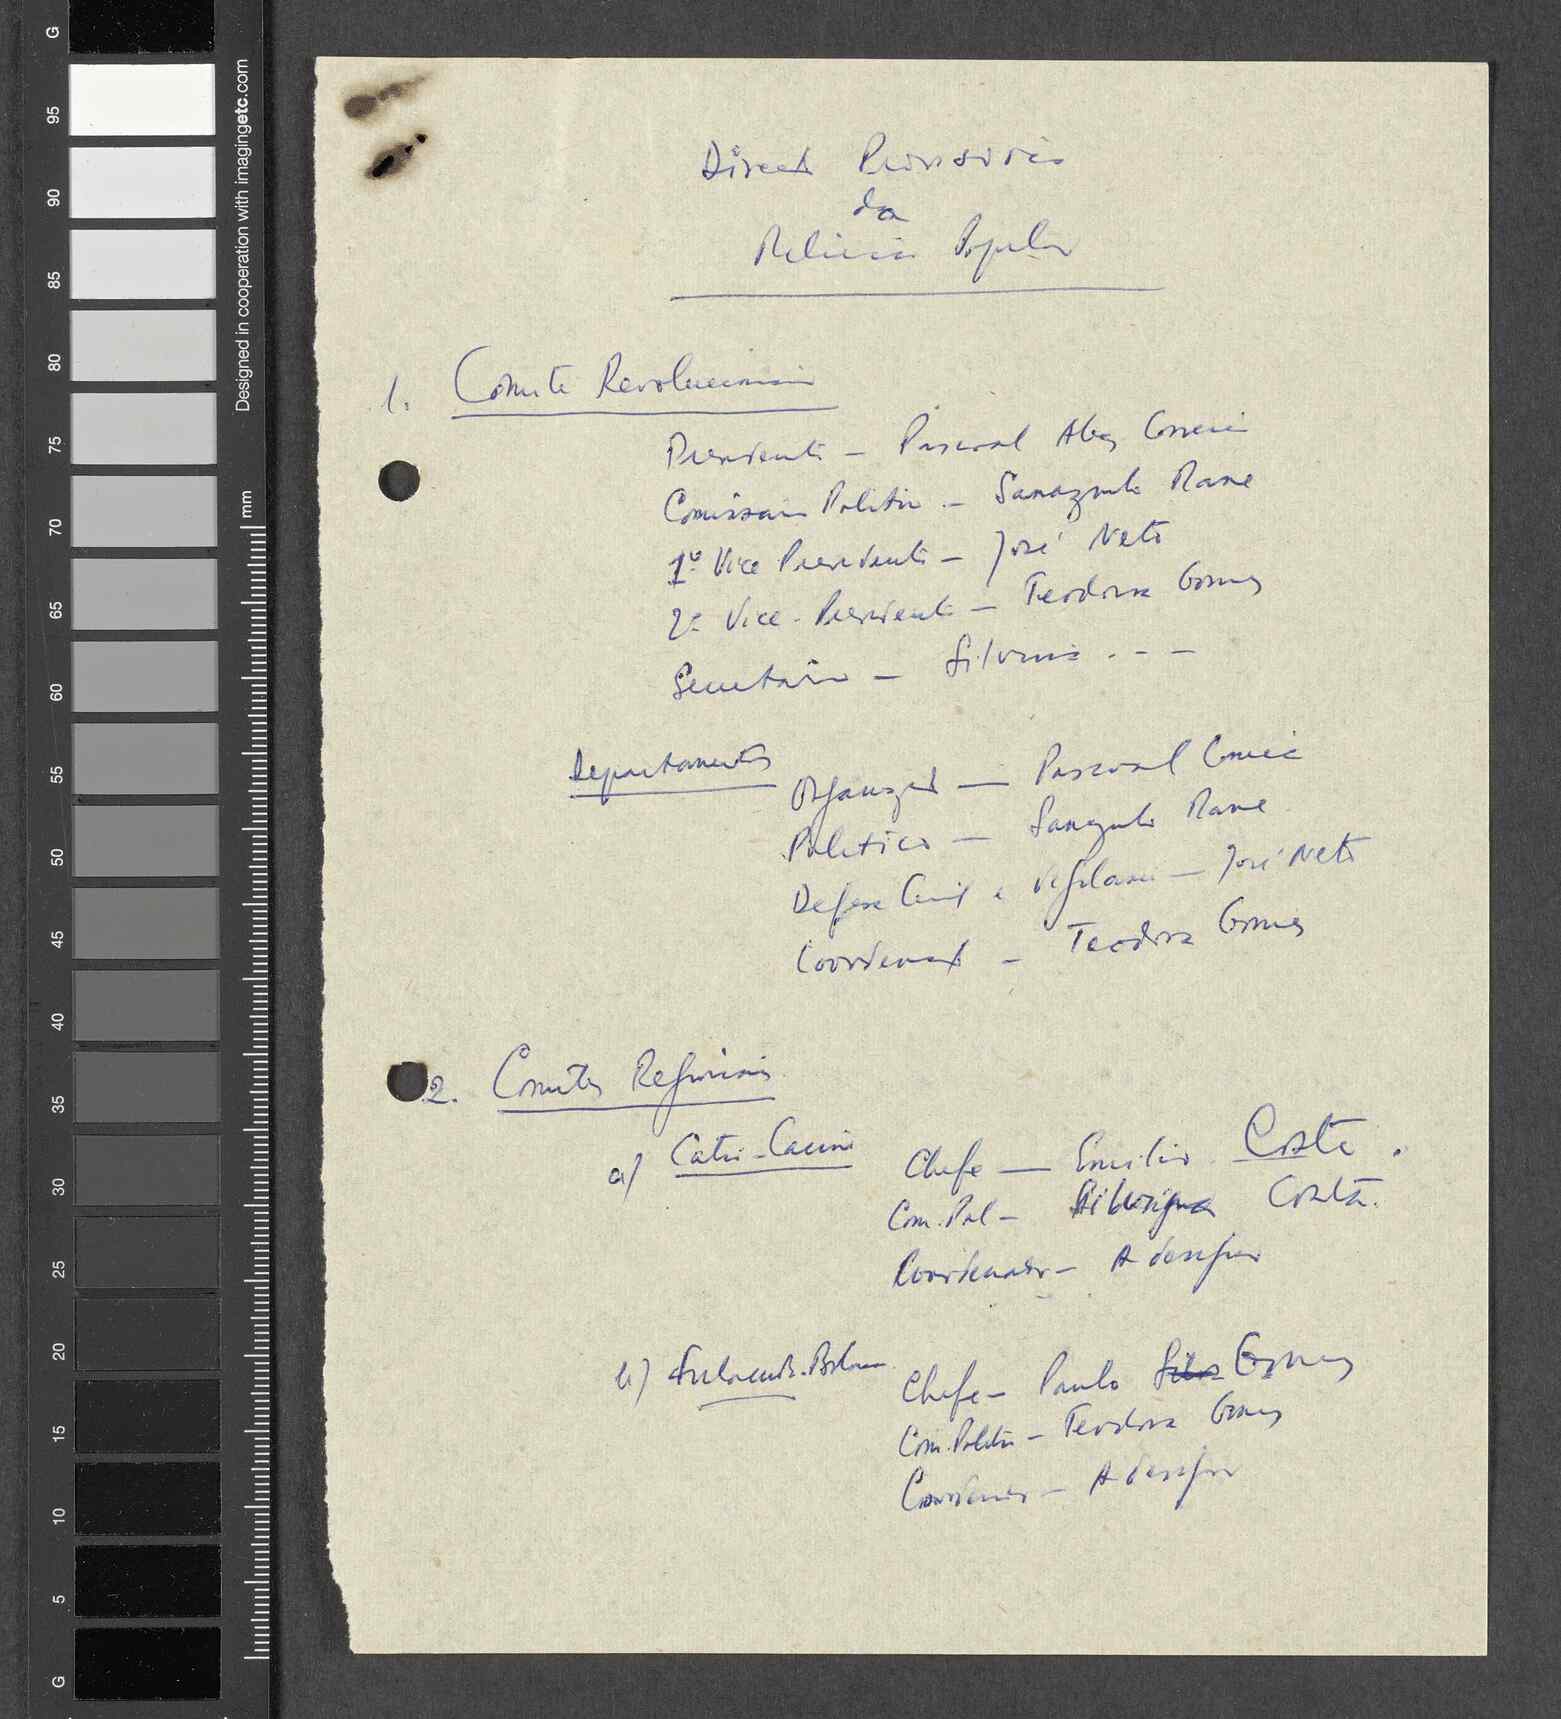 Direcção Provisória
da
Milicia Popular
1. Comité Revolucionário
Presidente — Pascoal Alves Correia
Comissário Politico — Sanazute Mane
1º Vice Presidente — José Neto
2º Vice-Presidente — Teodora Gomes
Secretário — Silvino - - -
Departamentos
Organização — Pascoal Correia
Politico — Mane
Defesa Civil e Vigilancia — José Neto
Coordenação — Teodora Gomes
2. Comités Regionais
a) Catió-Cacine
Chefe — Emilio Costa.
Com. Pol — Costa.
Coordenador — A designar
b) Fulacunda-Bolama
Chefe — Paulo Silva Gomes
Com. Politico — Teodora Gomes
Coordenador — A designar
G
95
90
85
80
75
70
65
60
55
50
45
40
35
30
25
20
15
10
5
G
Designed in cooperation with imagingetc.com
mm